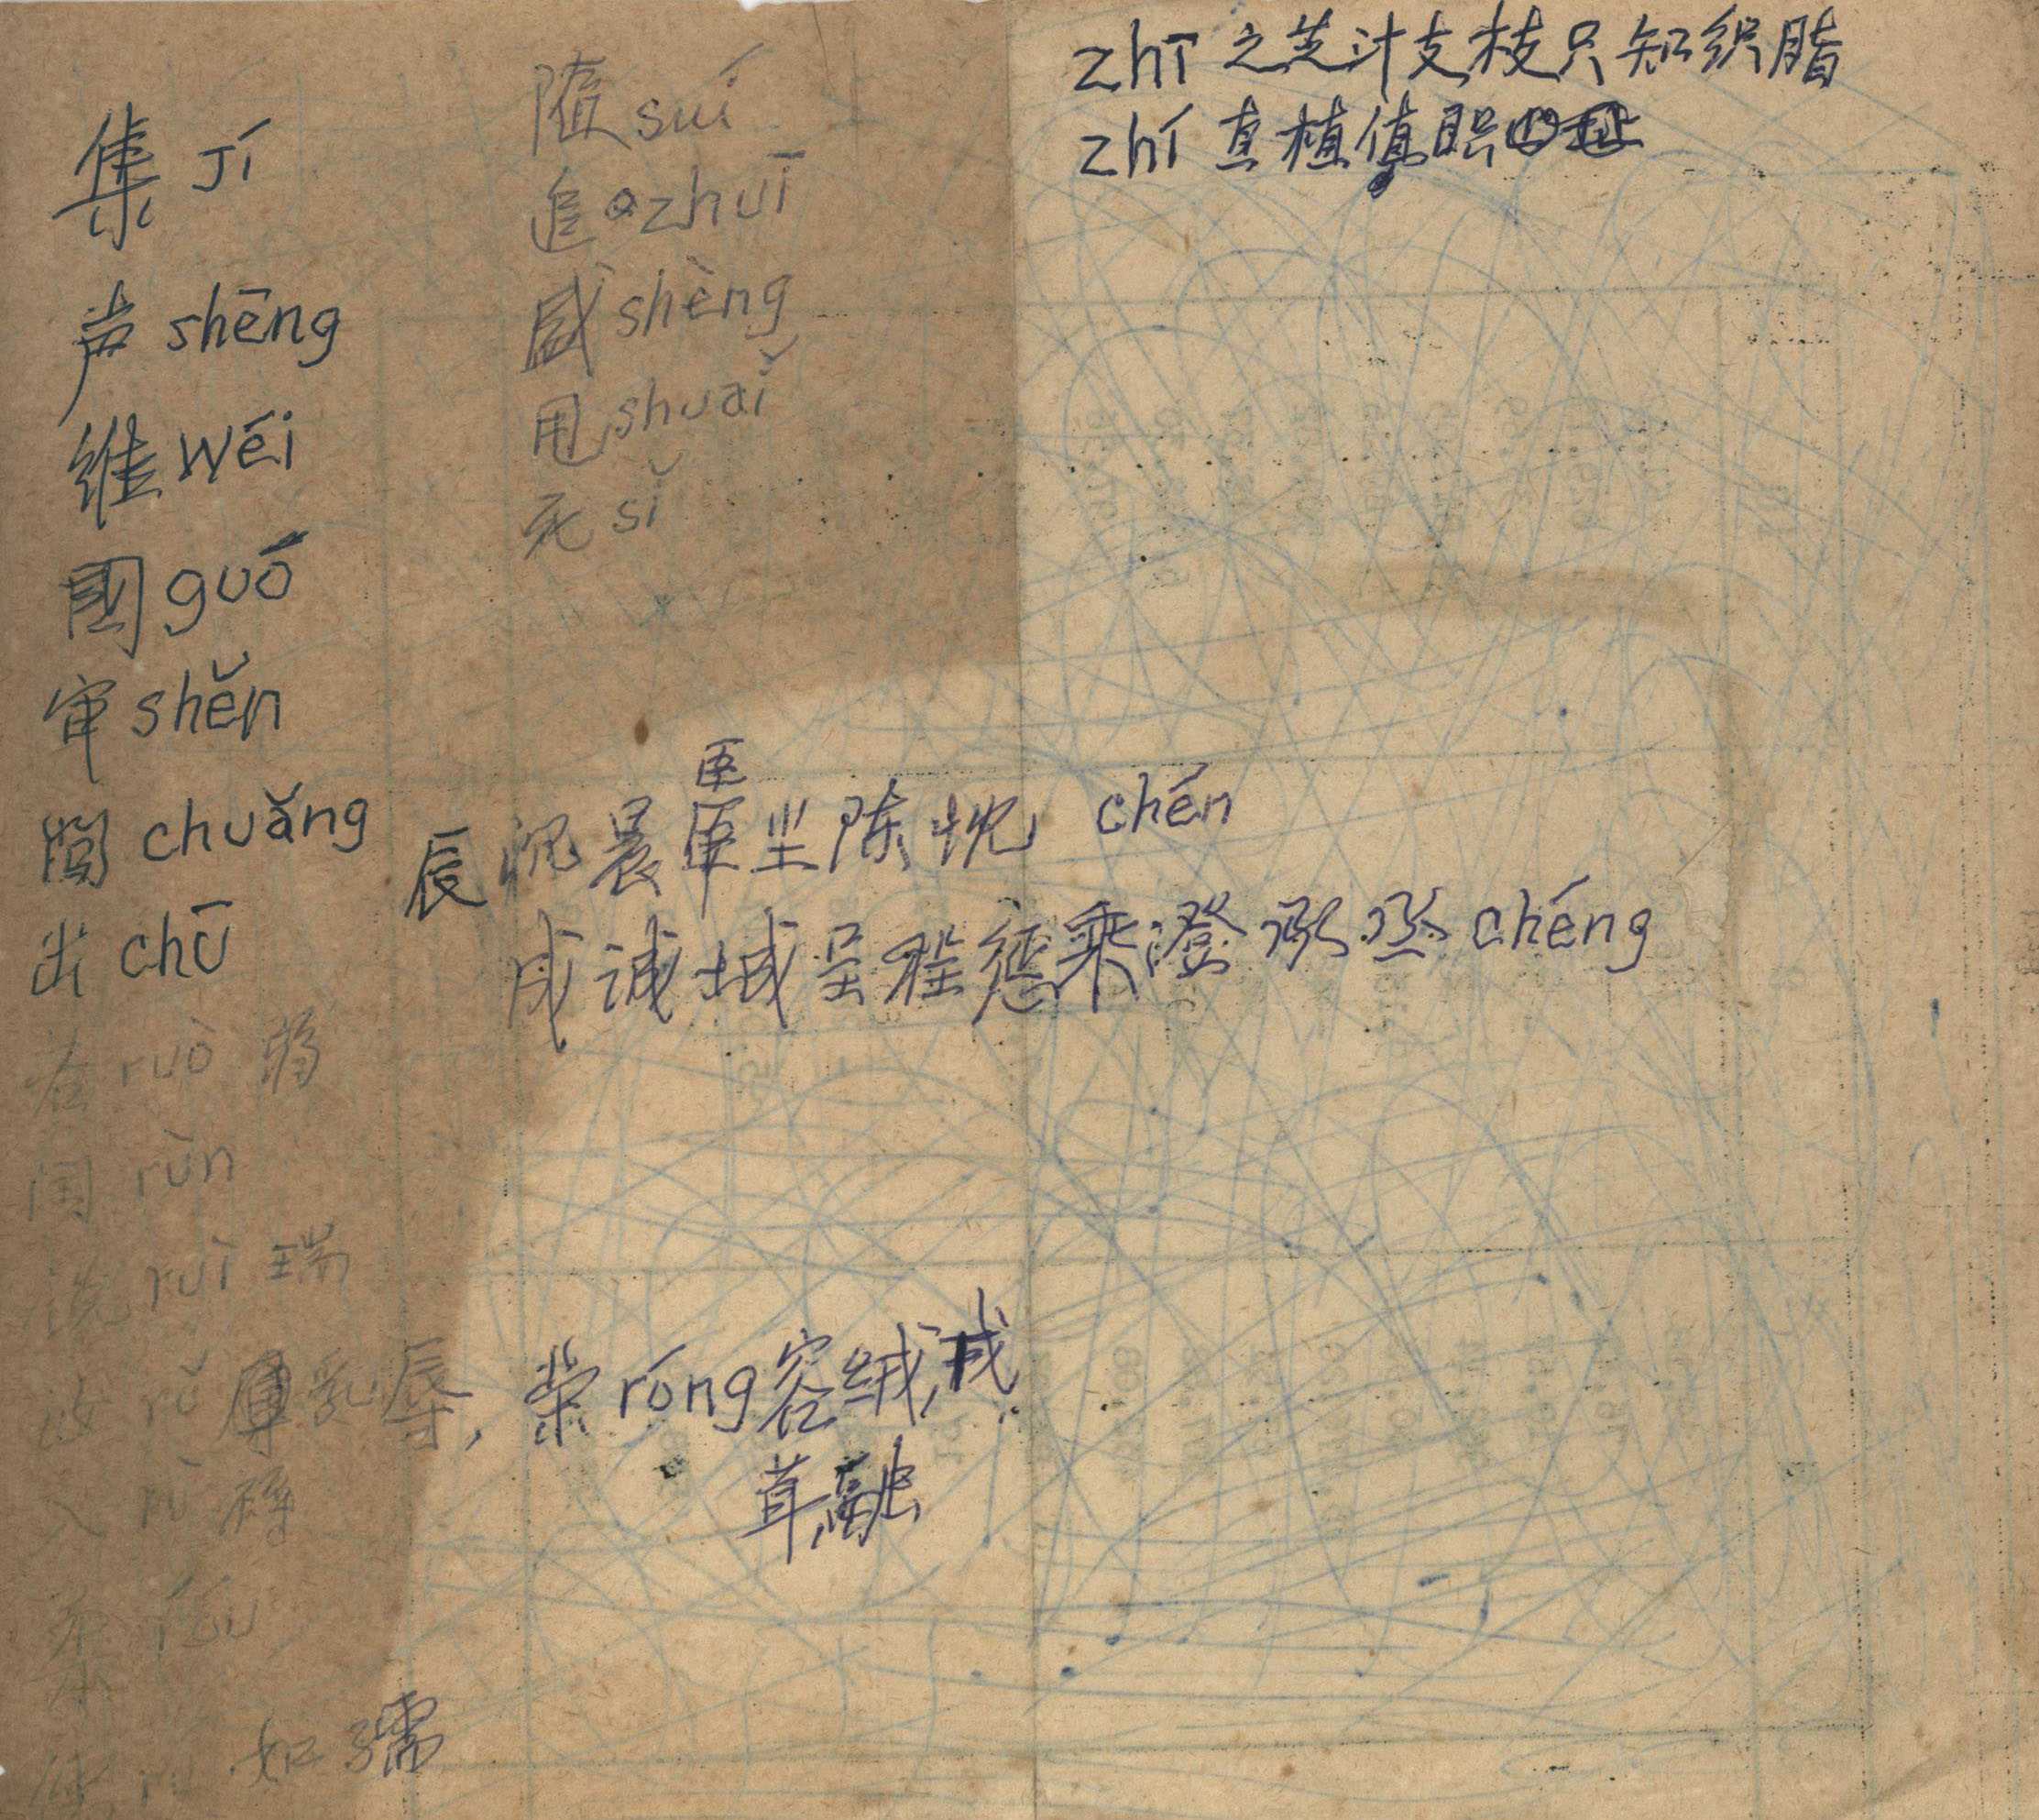 集 jí
声 shēng
维 wéi
國 guó
审 shěn
闖 chuǎng
出 chū
若 ruò 弱
闰 rùn
ruì 瑞
汝 rǔ 乳辱，荣 róng 容绒，戎
茸融
入 rù
柔 róu
如 孺
隨 suí
追 zhuī
盛 shèng
甩 shuǎi
死 sǐ
zhī 之芝汁支枝只知织脂
zhí 直植值职
臣
辰沉晨臣尘陈忱 chén
成诚城呈程惩乘澄承丞 chéng